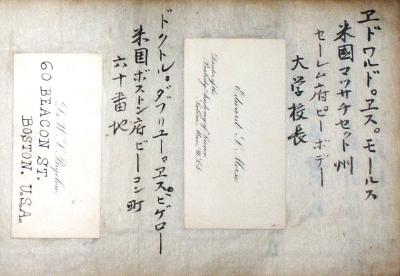 ヱドワルド。ヱス。モールス
米國マツサチセット州
セーレム府ピーボデー
大学校長
Edward S. Morse,
Director of the
Peabody Academy of Science
Salem, Mass. U.S.A.
ドクトル。ダブリユー。ヱス。ビゲロー
米国ボストン府ビーコン町
六十番地
Dr. W. S. Bigelow
60 BEACON ST.
BOSTON. U.S.A.